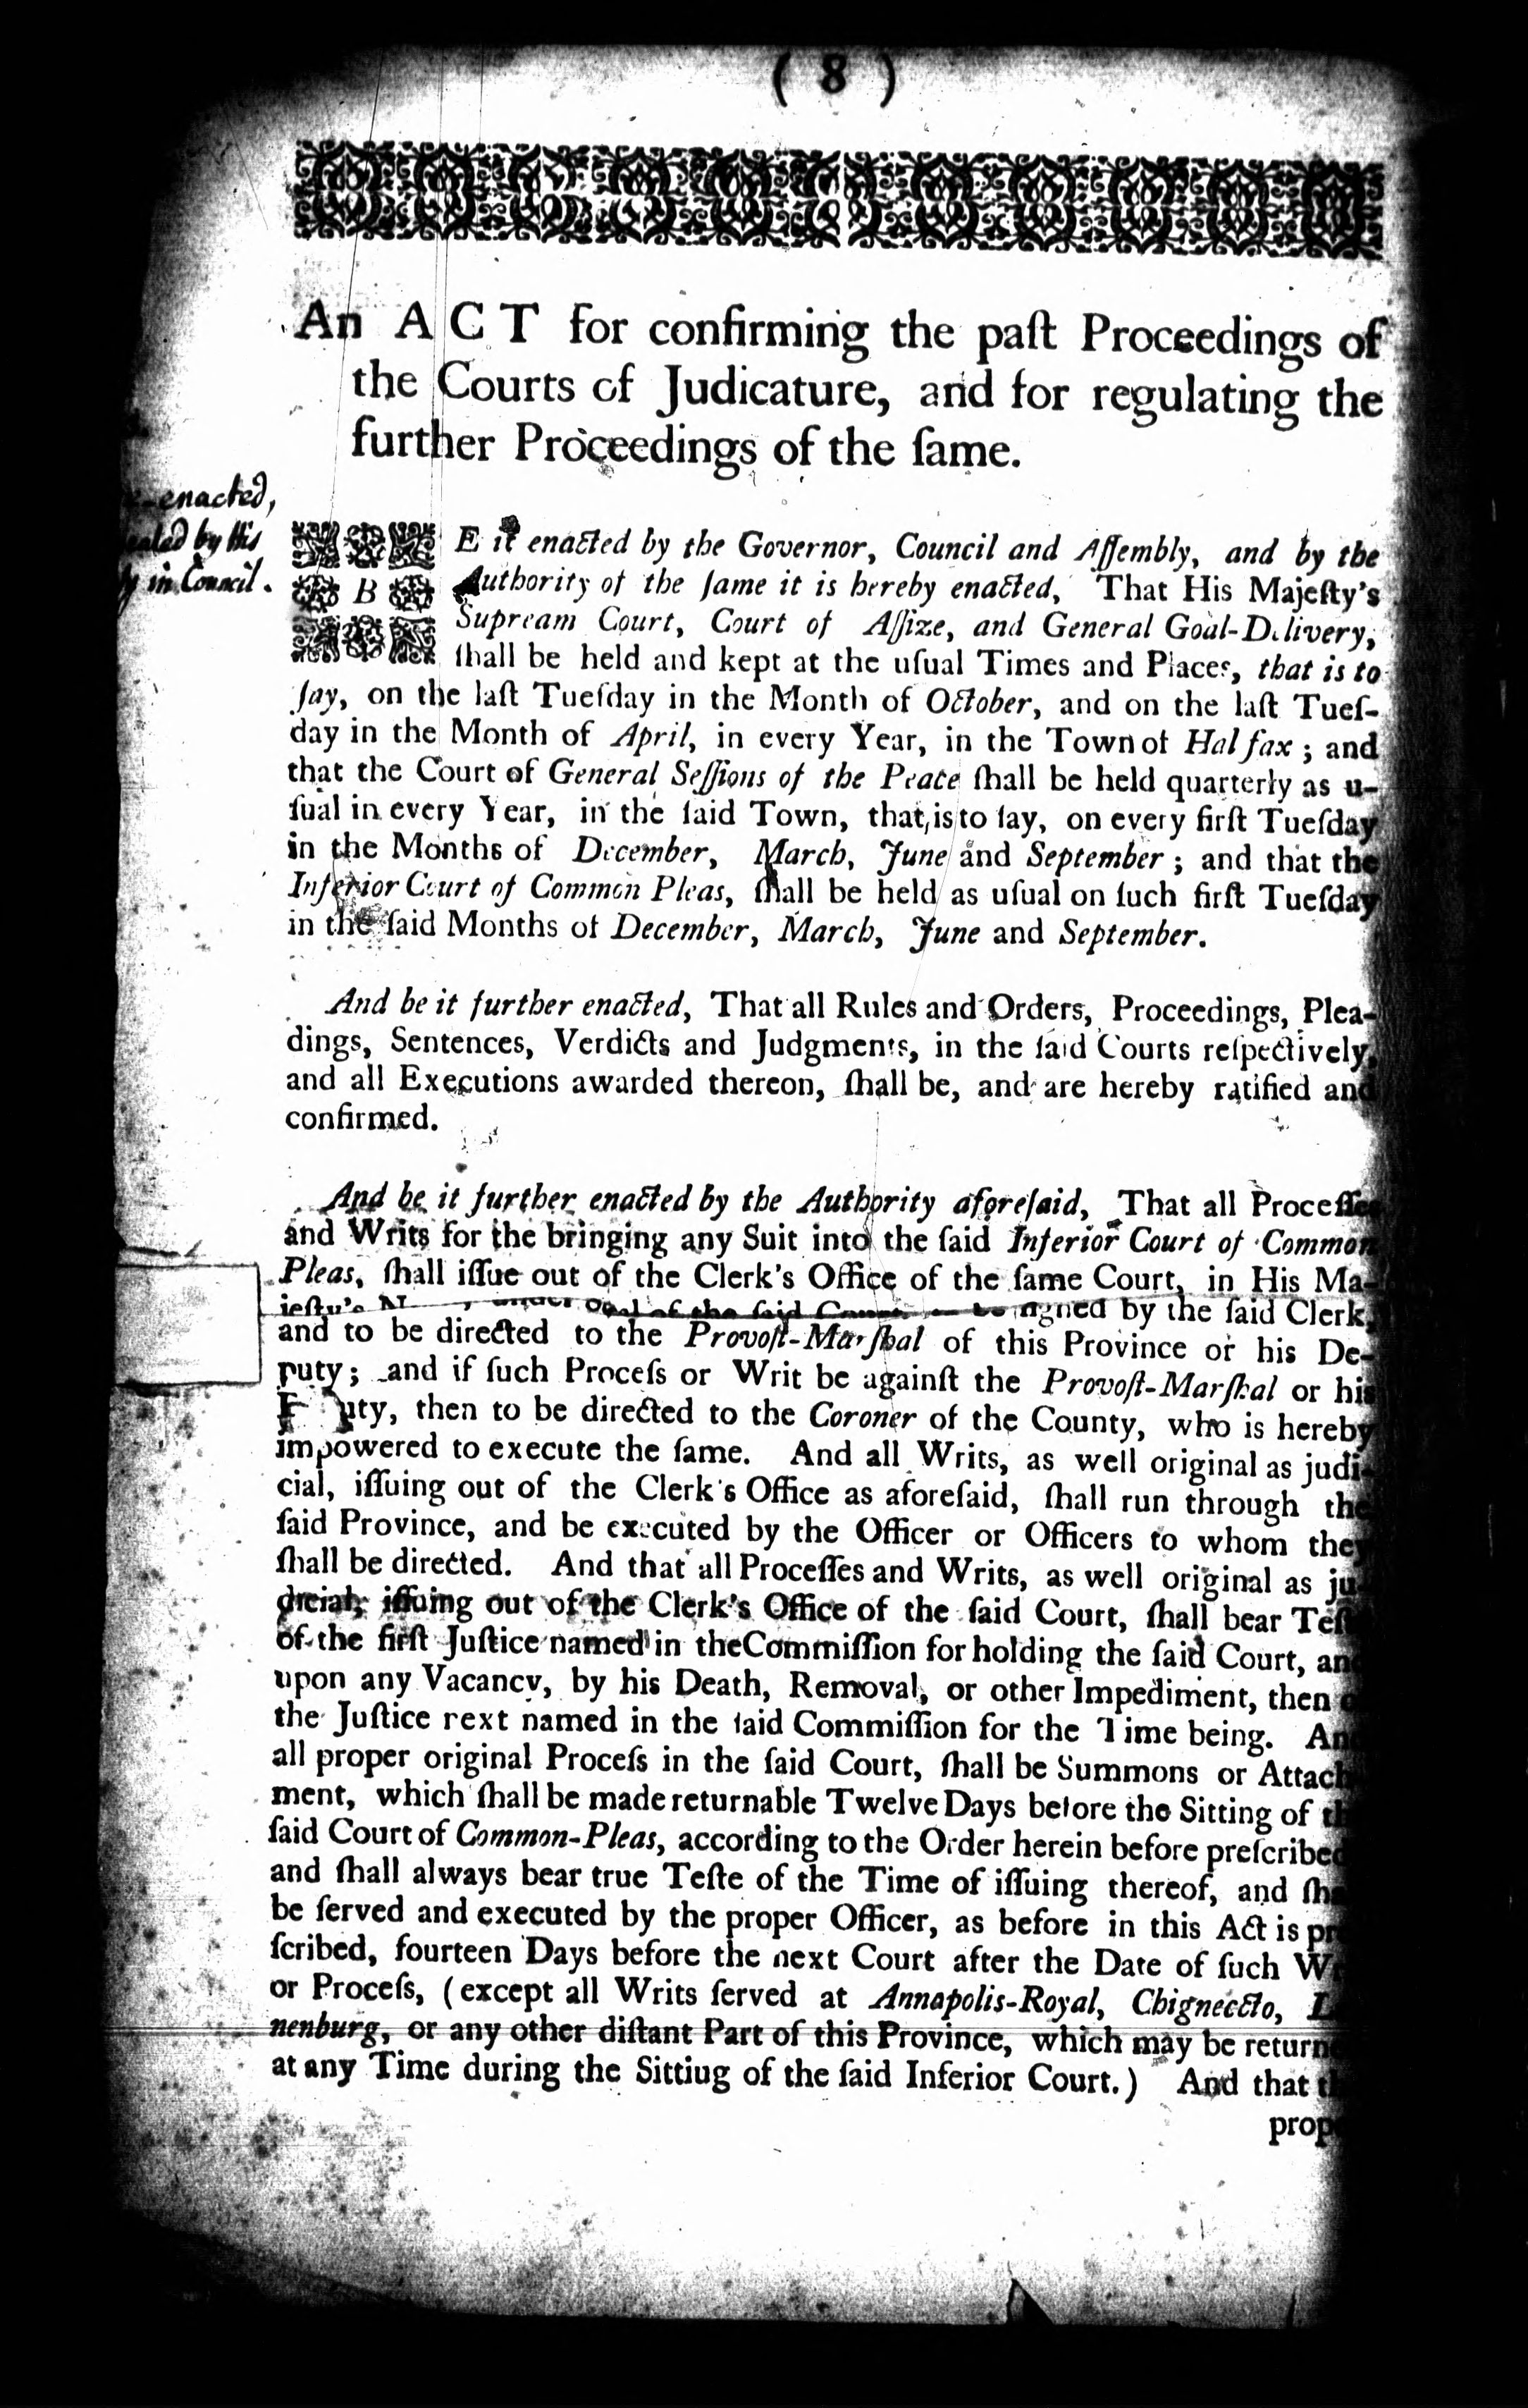 ( 8 )
An ACT for confirming the paſt Proceedings of
the Courts of Judicature, and for regulating the
further Proceedings of the ſame.
-enacted,
ealed by His
in Council.
BE it enacted by the Governor, Council and Aſſembly, and by the
Authority of the ſame it is hereby enacted, That His Majeſty's
Supream Court, Court of Aſſize, and General Goal-Delivery,
ſhall be held and kept at the uſual Times and Places, that is to
ſay, on the laſt Tueſday in the Month of October, and on the laſt Tueſ-
day in the Month of April, in every Year, in the Town of Halifax; and
that the Court of General Seſſions of the Peace ſhall be held quarterly as u-
ſual in every Year, in the ſaid Town, that is to ſay, on every firſt Tueſday
in the Months of December, March, June and September; and that the
Inferior Court of Common Pleas, ſhall be held as uſual on ſuch firſt Tueſday
in the ſaid Months of December, March, June and September.
And be it further enacted, That all Rules and Orders, Proceedings, Plea-
dings, Sentences, Verdicts and Judgments, in the ſaid Courts reſpectively,
and all Executions awarded thereon, ſhall be, and are hereby ratified and
confirmed.
And be it further enacted by the Authority aforeſaid, That all Proceſſes
and Writs for the bringing any Suit into the ſaid Inferior Court of Common
Pleas, ſhall iſſue out of the Clerk's Office of the ſame Court, in His Ma-
jeſty's under of the ſaid by the ſaid Clerk,
and to be directed to the Provoſt-Marſhal of this Province or his De-
puty; and if ſuch Proceſs or Writ be againſt the Provoſt-Marſhal or his
uty, then to be directed to the Coroner of the County, who is hereby
impowered to execute the ſame. And all Writs, as well original as judi-
cial, iſſuing out of the Clerk's Office as aforeſaid, ſhall run through the
ſaid Province, and be executed by the Officer or Officers to whom they
ſhall be directed. And that all Proceſſes and Writs, as well original as ju-
dicial, iſſuing out of the Clerk's Office of the ſaid Court, ſhall bear Teſt
of the firſt Juſtice named in theCommiſſion for holding the ſaid Court, and
upon any Vacancy, by his Death, Removal, or other Impediment, then
the Juſtice next named in the ſaid Commiſſion for the Time being. And
all proper original Proceſs in the ſaid Court, ſhall be Summons or Attach
ment, which ſhall be made returnable Twelve Days before the Sitting of th
ſaid Court of Common-Pleas, according to the Order herein before preſcribed
and ſhall always bear true Teſte of the Time of iſſuing thereof, and ſha
be ſerved and executed by the proper Officer, as before in this Act is pr
ſcribed, fourteen Days before the next Court after the Date of ſuch Wr
or Proceſs, (except all Writs ſerved at Annapolis-Royal, Chignecto, L
nenburg, or any other diſtant Part of this Province, which may be return
at any Time during the Sittiug of the ſaid Inferior Court.) And that th
prop